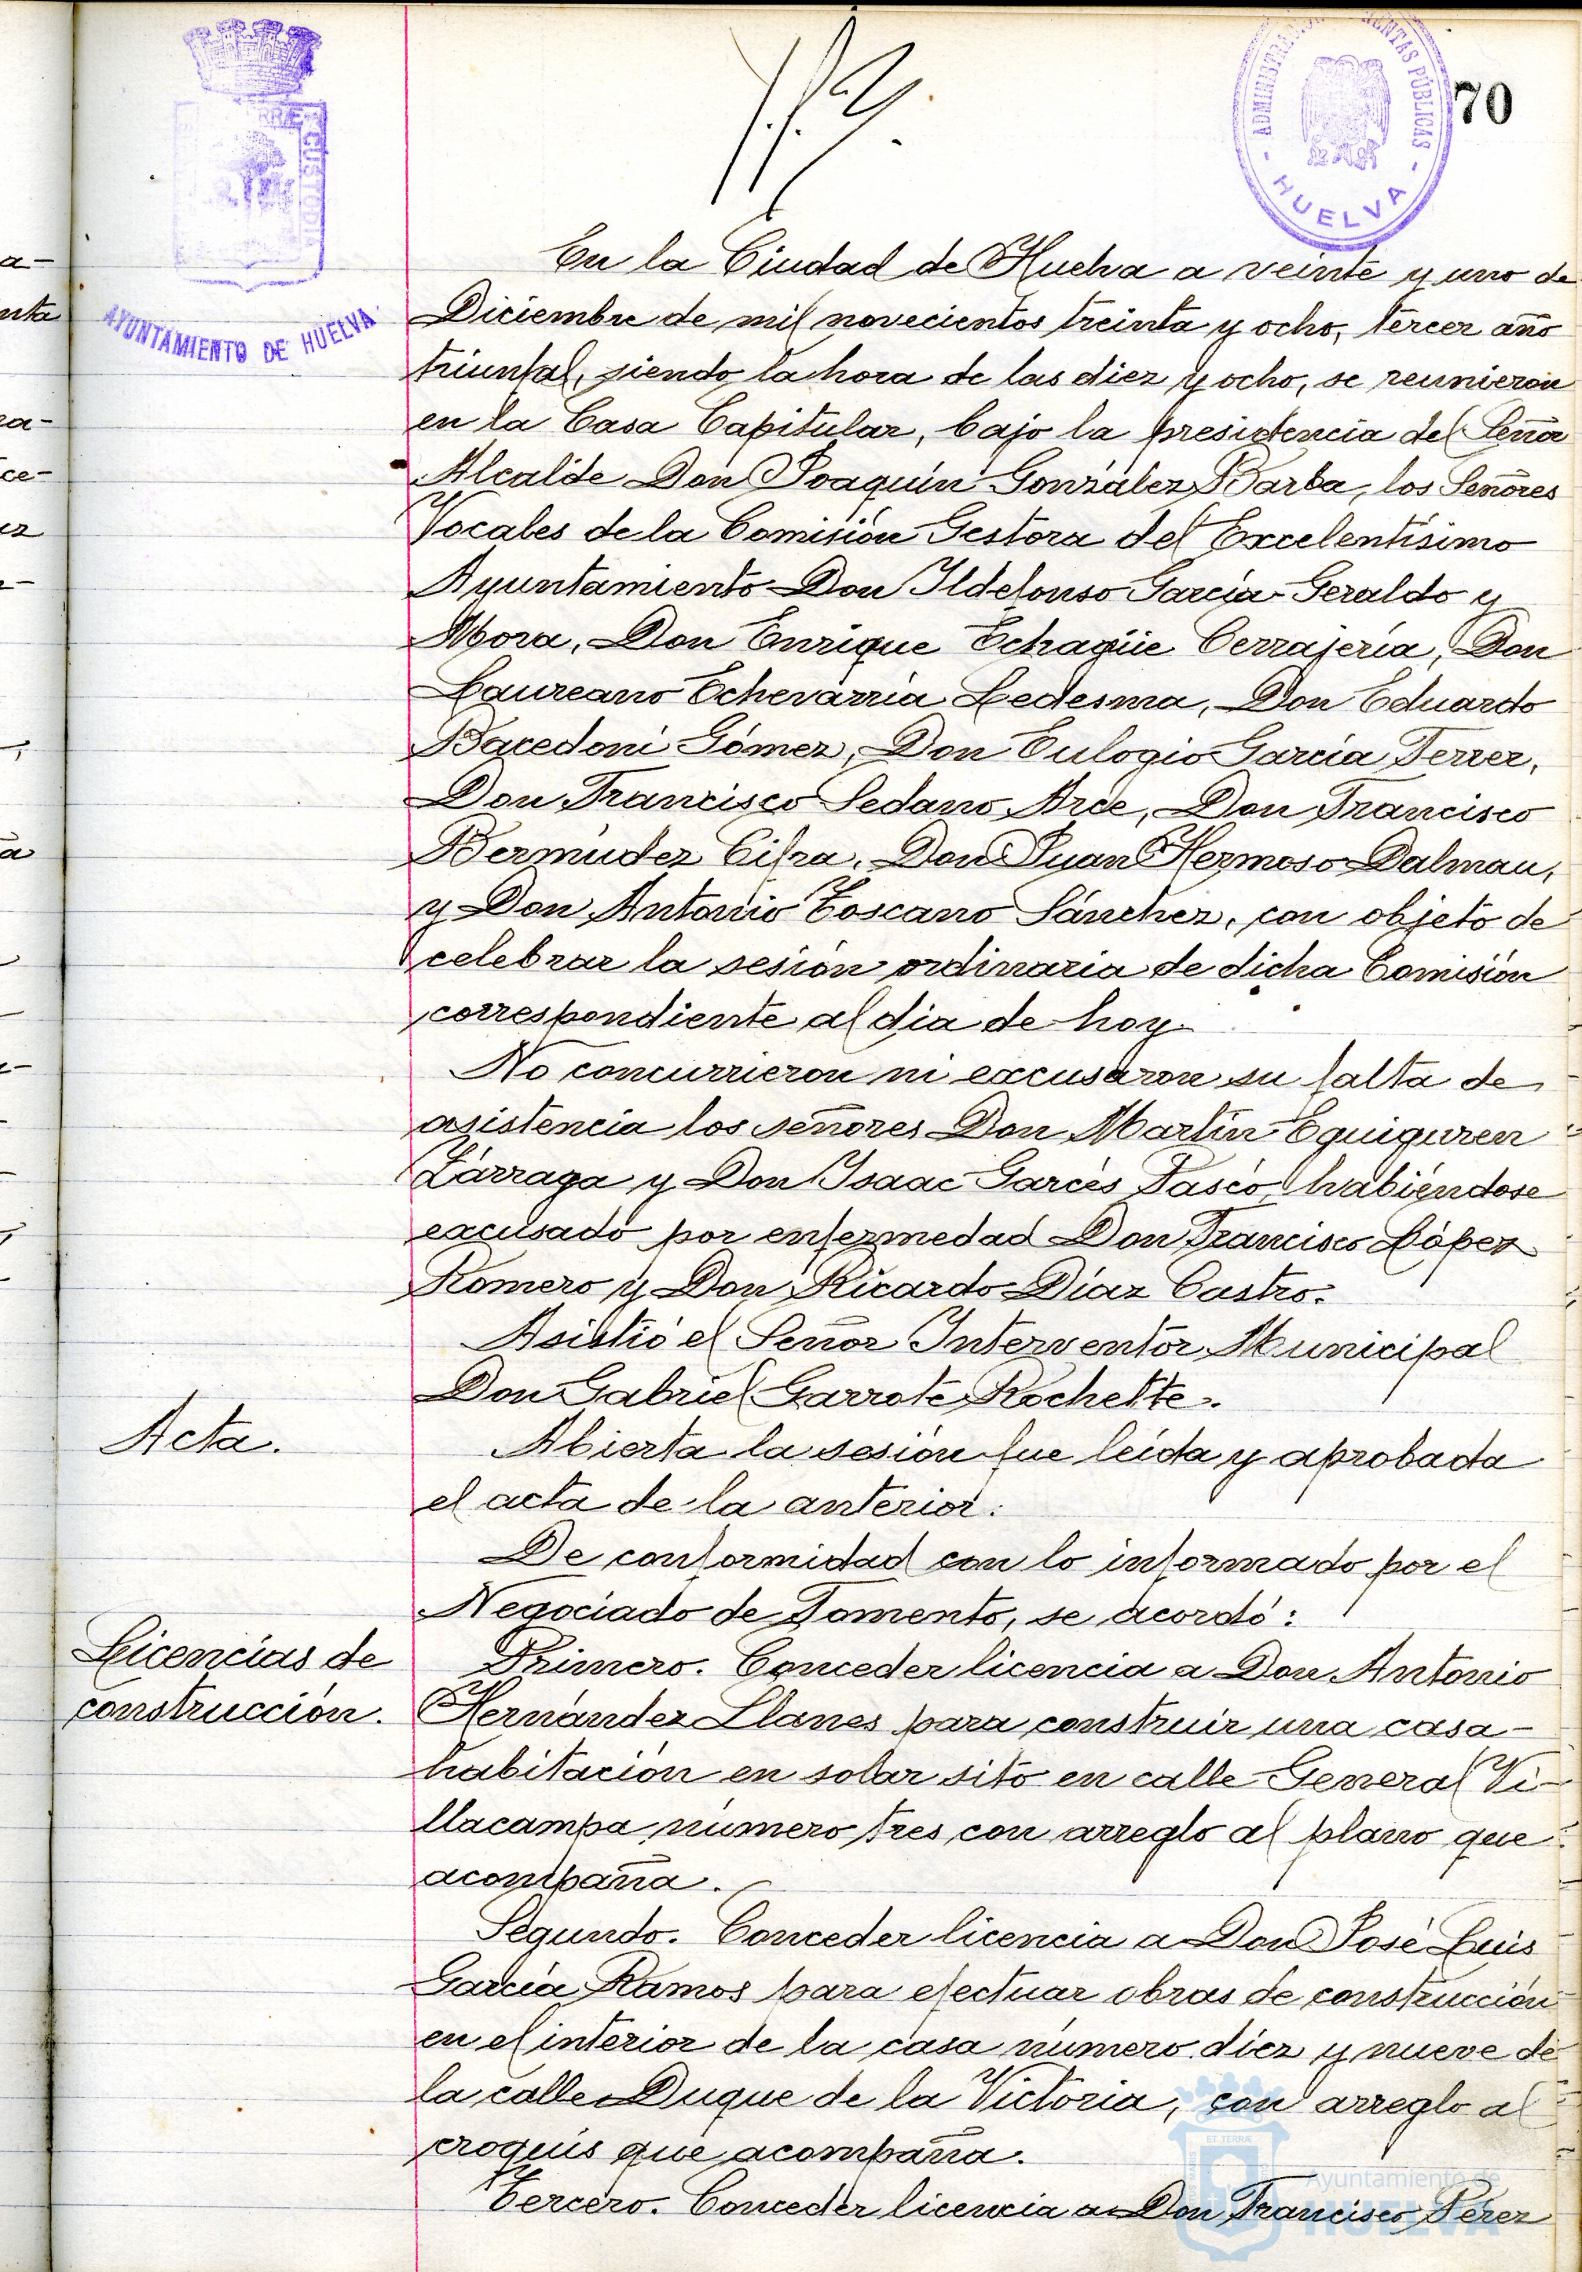 70
ADMINISTRACIÓN RENTAS PÚBLICAS
- HUELVA -
CUSTODIA
AYUNTAMIENTO DE HUELVA
En la Ciudad de Huelva a veinte y uno de
Diciembre de mil novecientos treinta y ocho, tercer año
triunfal, siendo la hora de las diez y ocho, se reunieron
en la Casa Capitular, bajo la presidencia del Señor
Alcalde Don Joaquín González Barba, los Señores
Vocales de la Comisión Gestora del Excelentísimo
Ayuntamiento Don Ildefonso García-Geraldo y
Mora, Don Enrique Echagüe Cerrajería, Don
Laureano Echevarría Ledesma, Don Eduardo
Bacedoni Gómez, Don Eulogio García Ferrer,
Don Francisco Sedano Arce, Don Francisco
Bermúdez Cifra, Don Juan Hermoso Dalmau,
y Don Antonio Toscano Sánchez, con objeto de
celebrar la sesión ordinaria de dicha Comisión
correspondiente al dia de hoy.
No concurrieron ni excusaron su falta de
asistencia los señores Don Martín Eguiguren
Zárraga y Don Isaac Garcés Pascó, habiéndose
excusado por enfermedad Don Francisco López
Romero y Don Ricardo Díaz Castro.
Asistió el Señor Interventor Municipal
Don Gabriel Garrote Rochette.
Acta.
Abierta la sesión fue leída y aprobada
el acta de la anterior.
De conformidad con lo informado por el
Negociado de Fomento, se acordó:
Licencias de
construcción.
Primero. Conceder licencia a Don Antonio
Hernández Llanes para construir una casa-
habitación en solar sito en calle General Vi-
llacampa número tres con arreglo al plano que
acompaña.
Segundo. Conceder licencia a Don José Luis
García Ramos para efectuar obras de construcción
en el interior de la casa número diez y nueve de
la calle Duque de la Victoria, con arreglo al
croquis que acompaña.
Tercero. Conceder licencia a Don Francisco Pérez
Ayuntamiento de
HUELVA